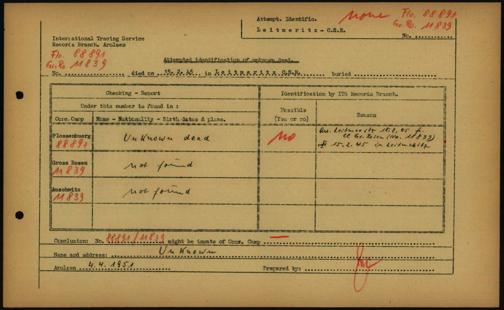 Attempt. Identific.
Leitmeritz - C.S.R.
none
Flo. 88891
Gr.Ro. 11839
No.
International Tracing Service
Records Branch, Arolsen
Flo. 88891
Gr.Ro 11839
Attempted identification of unknown dead.
No. died on 15.2.45 in Leitmeritz C.S.R. buried
Checking - Report
Identification by ITS Records Branch.
Under this number is found in :
Possible
(Yes or no)
Reason
Conc. Camp
Name - Nationality - Birth dates & place.
Flossenburg
88891
Unknown dead
no
Leitmeritz
15.2.45 in Leitmeritz
Gross Rosen
11839
not found
Auschwitz
11839
not found
Conclusion: No. 88891/11839 might be inmate of Conc. Camp —
Name and address: Unknown
Arolsen 4.4.1951 Prepared by: